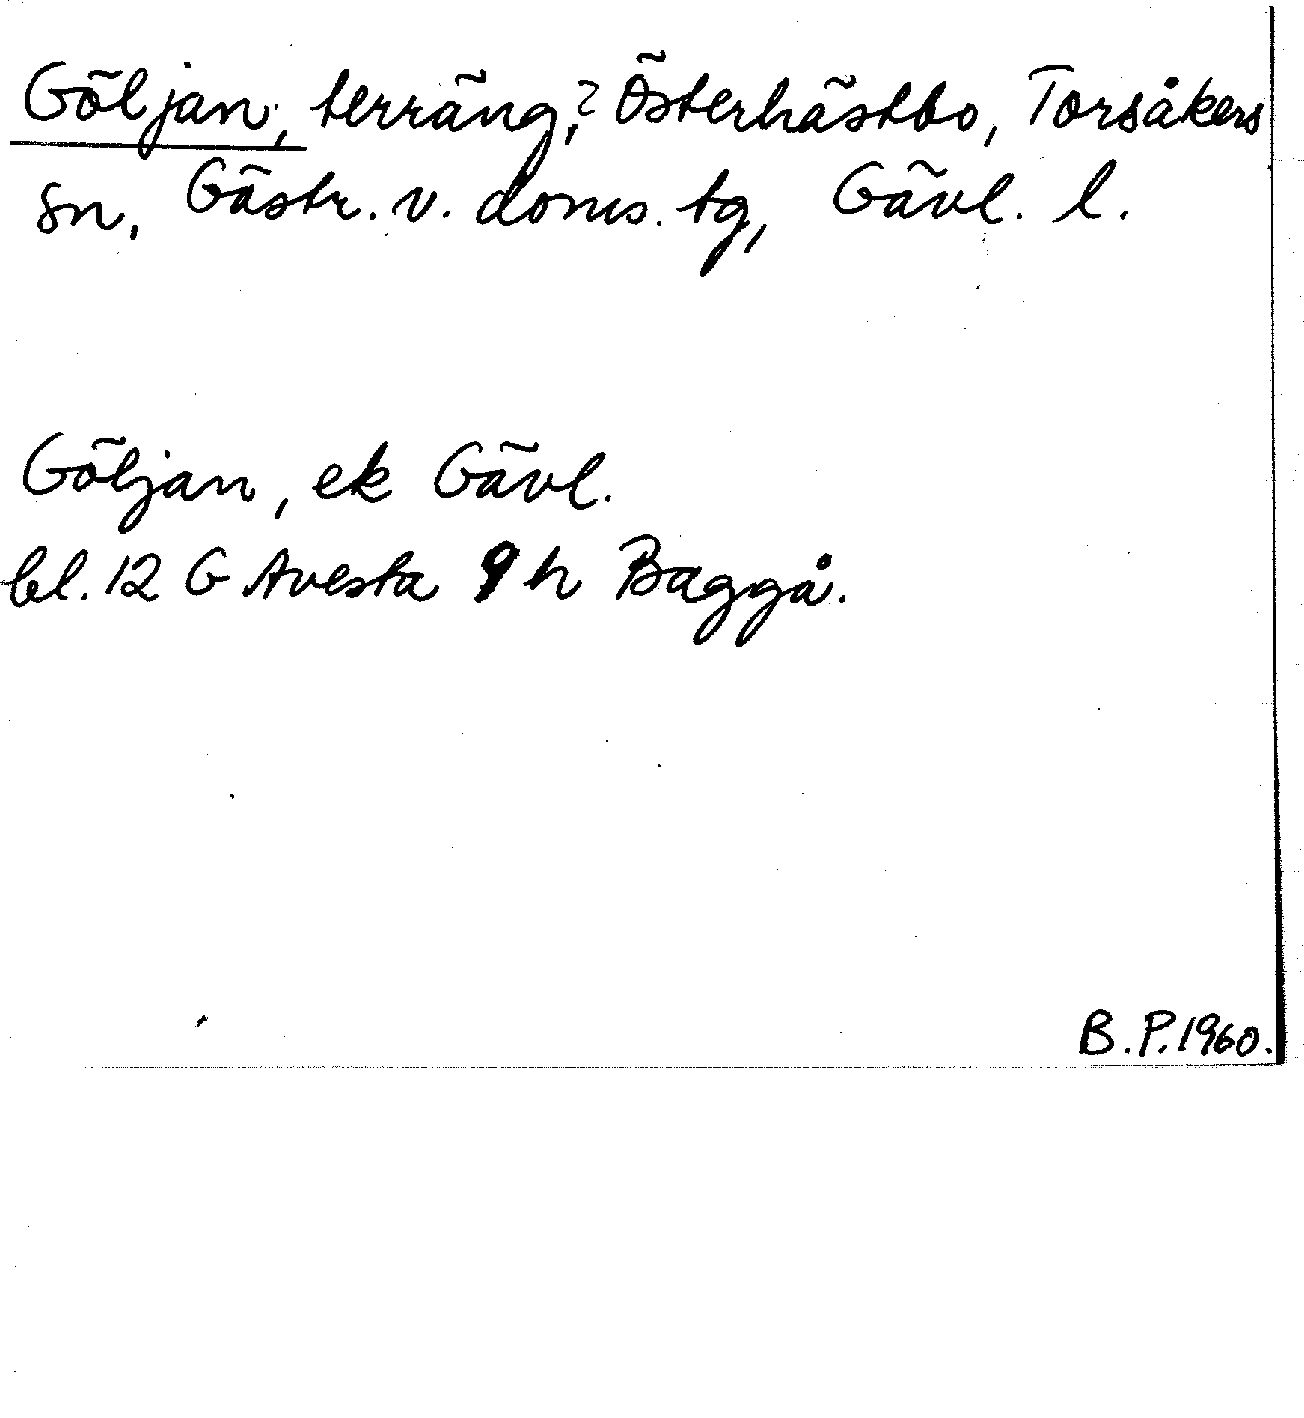 Göljan, terräng,? Österhästbo, Torsåkers
sn, Gästr. v. doms. tg, Gävl. l.
Göljan, ek Gävl.
bl. 12 G Avesta 9 h Baggå.
B.P. 1960.